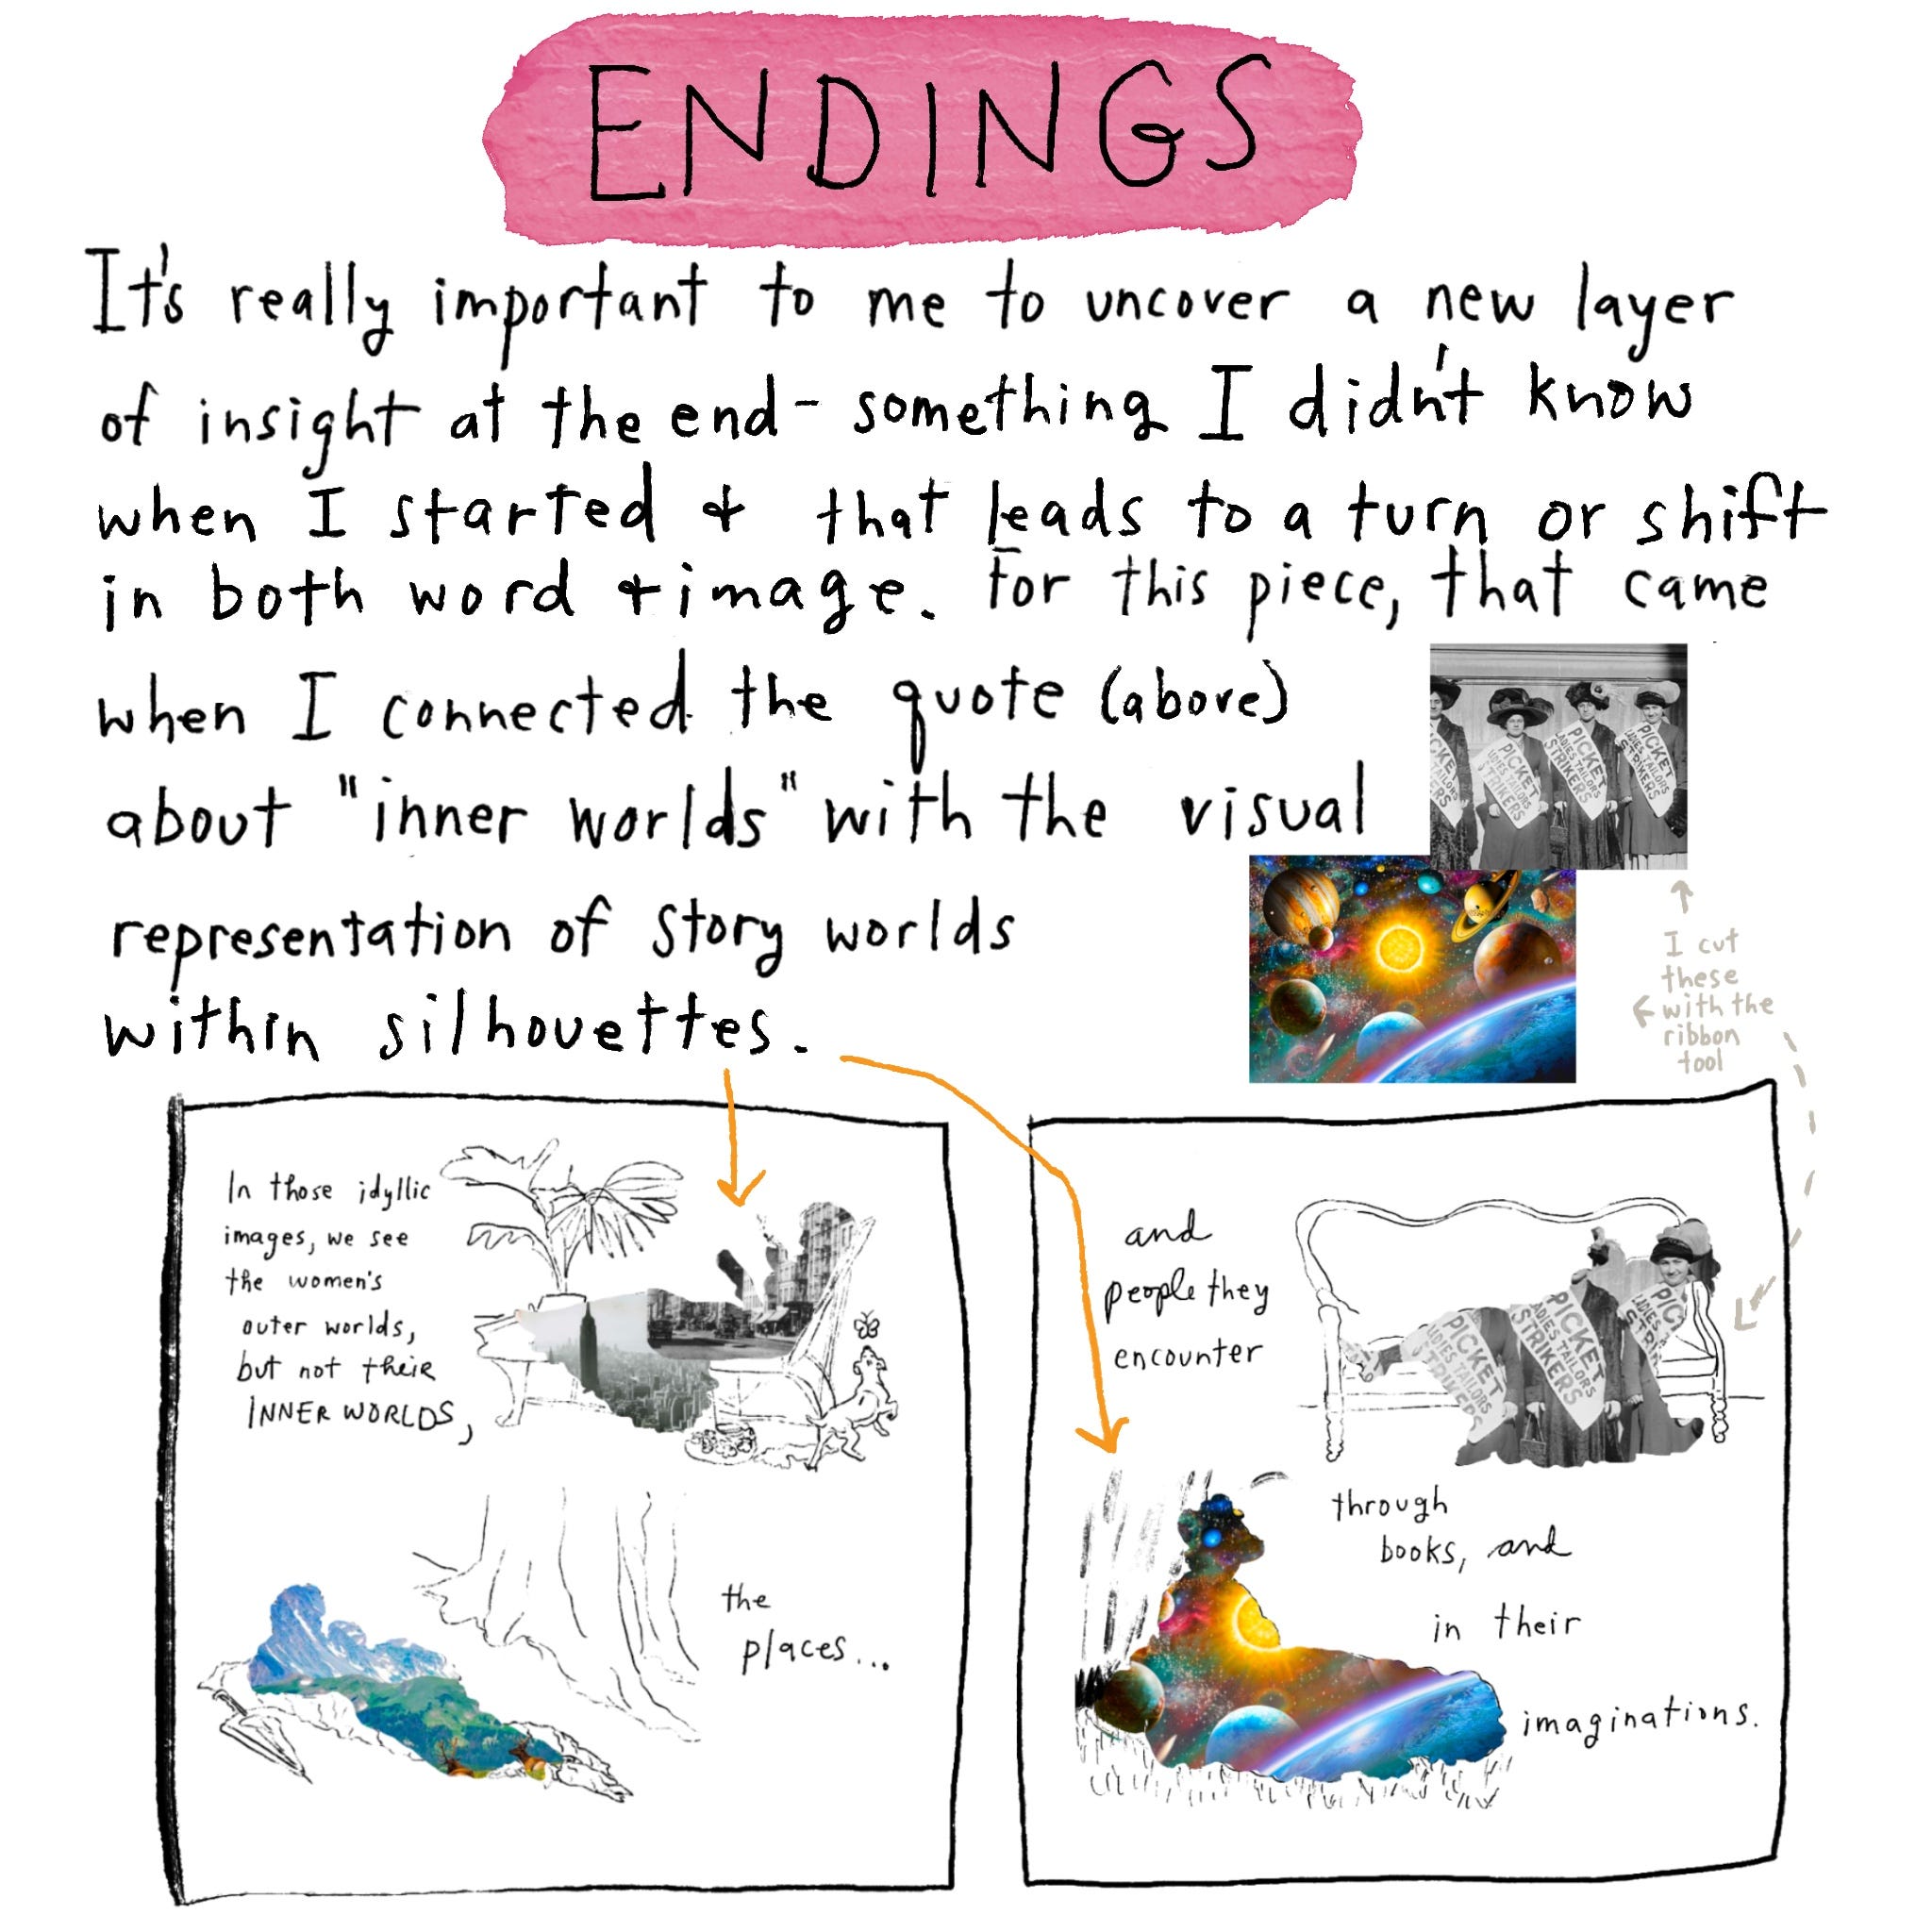 ENDINGS
It's really important to me to uncover a new layer
of insight at the end - something I didn't know
when I started & that leads to a turn or shift
in both word & image. For this piece, that came
when I connected the quote (above)
about "inner worlds" with the visual
representation of story worlds
within silhouettes.
PICKET
LADIES TAILORS
STRIKERS
PICKET
LADIES TAILORS
STRIKERS
PICKET
LADIES TAILORS
STRIKERS
I cut
these
with the
ribbon
tool
In those idyllic
images, we see
the women's
outer worlds,
but not their
INNER WORLDS,
the
places...
and
people they
encounter
PICKET
LADIES TAILORS
STRIKERS
PICKET
LADIES TAILORS
STRIKERS
through
books, and
in their
imaginations.